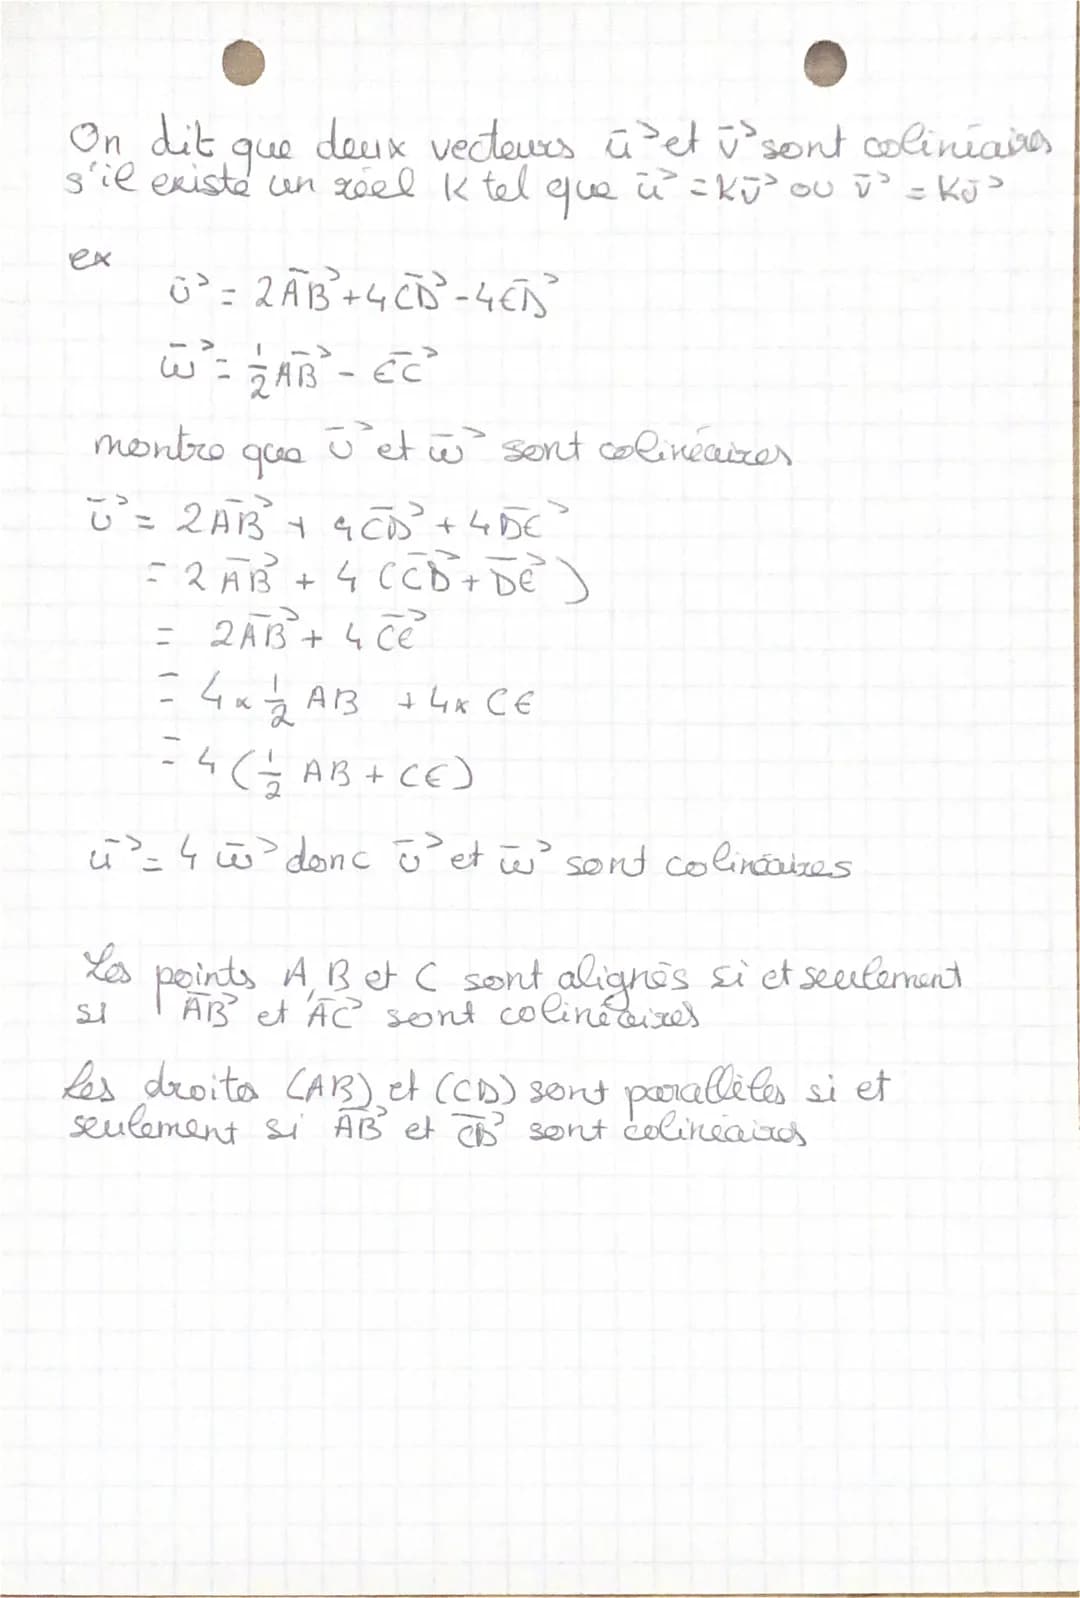 On dit que deux vecteurs u⃗ et v⃗ sont colinéaires
s'il existe un réel K tel que u⃗ = Kv⃗ ou v⃗ = Ku⃗
ex
u⃗ = 2AB⃗ + 4CD⃗ - 4ED⃗
w⃗ = 1/2 AB⃗ - EC⃗
montre que u⃗ et w⃗ sont colinéaires
u⃗ = 2AB⃗ + 4CD⃗ + 4DE⃗
= 2AB⃗ + 4 (CD⃗ + DE⃗)
= 2AB⃗ + 4 CE⃗
= 4 x 1/2 AB + 4 x CE
= 4 (1/2 AB + CE)
u⃗ = 4 w⃗ donc u⃗ et w⃗ sont colinéaires
Les points A, B et C sont alignés si et seulement
si AB⃗ et AC⃗ sont colinéaires
les droites (AB) et (CD) sont parallèles si et
seulement si AB⃗ et CD⃗ sont colinéaires